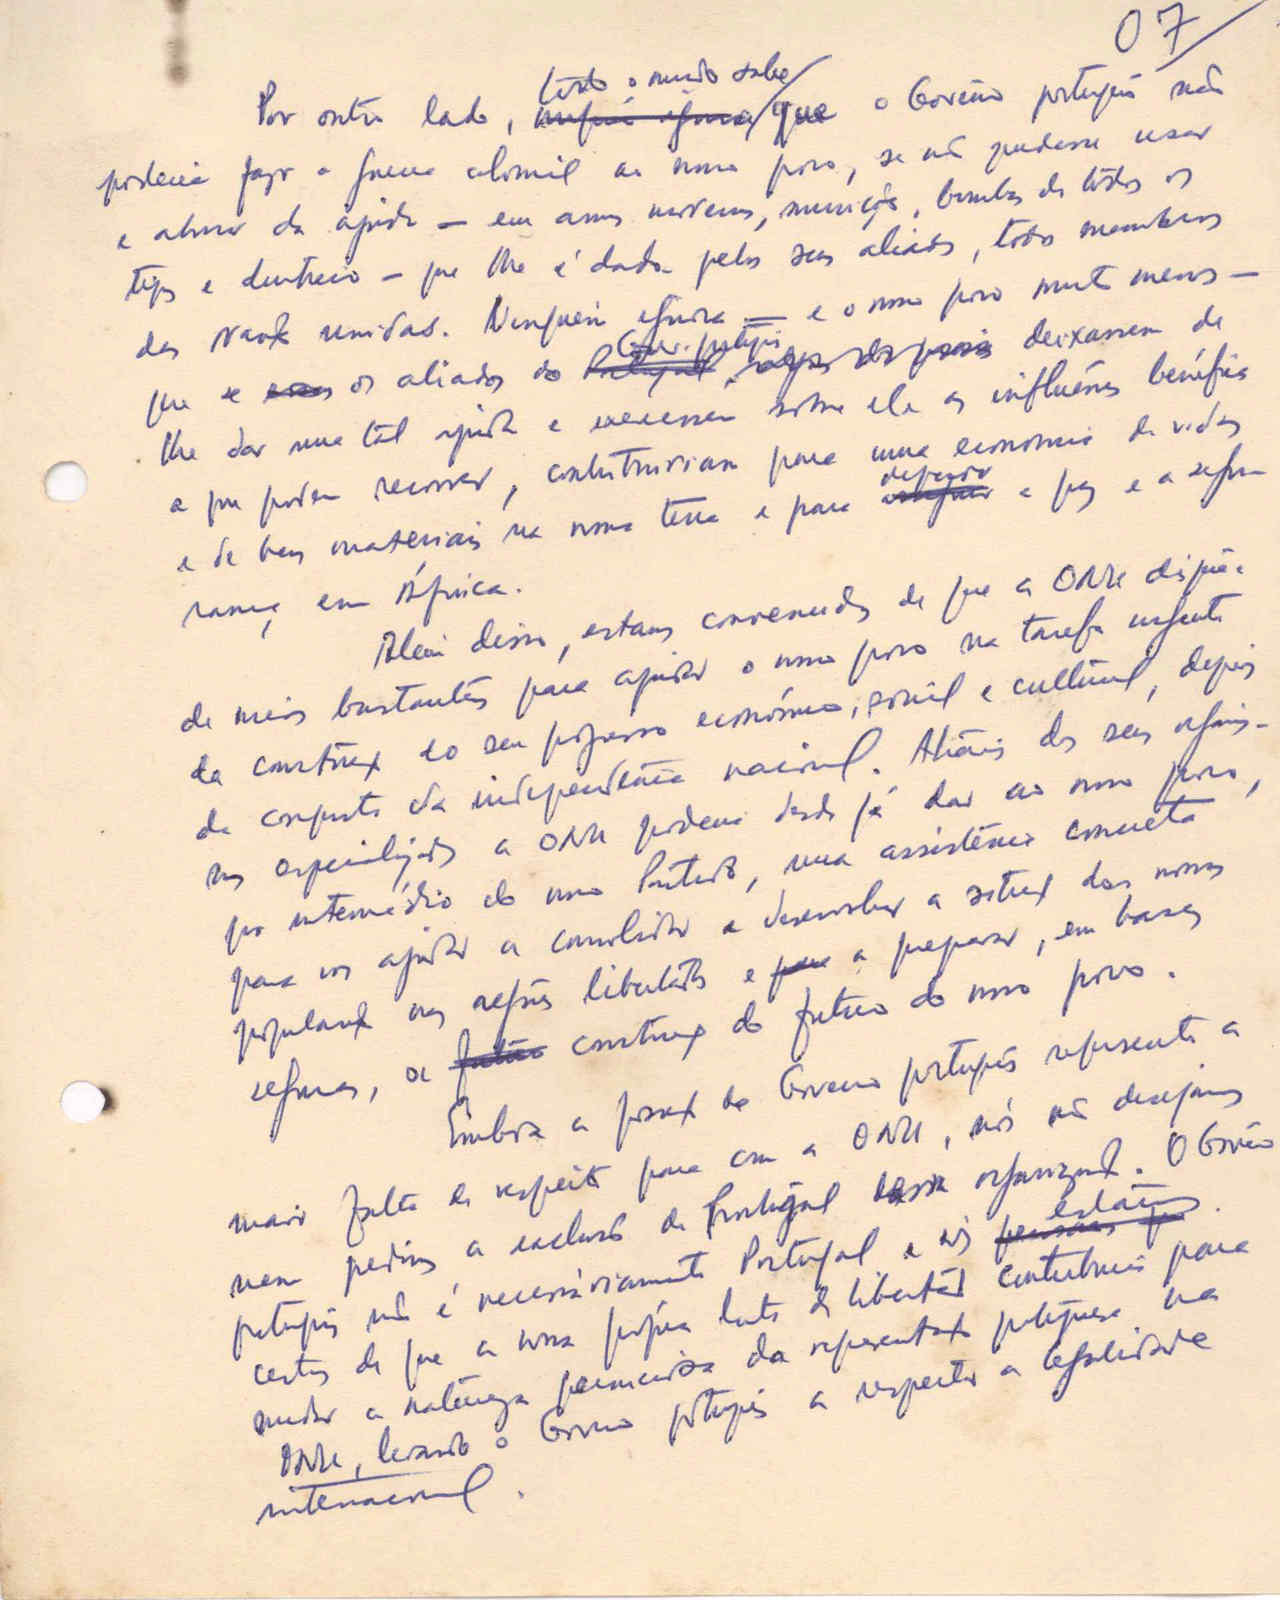 07
todo o mundo sabe
Por outro lado, ninguém ignora que o Govêrno português não
poderia fazer a guerra colonial ao nosso povo, se não pudesse usar
e abusar da ajuda — em armas modernas, munições, bombas de todos os
tipos e dinheiro — que lhe é dada pelos seus aliados, todos membros
das Nações Unidas. Ninguém ignora — e o nosso povo muito menos —
Gov. português
que se esses os aliados do Portugal, deixassem de
lhe dar uma tal ajuda e exercessem sobre ele as influências benéficas
a que podem recorrer, contribuiriam para uma economia de vidas
defender
e de bens materiais na nossa terra e para assegurar a paz e a segu-
rança em África.
Além disso, estamos convencidos de que a ONU dispõe
de meios bastantes para ajudar o nosso povo na tarefa urgente
da construção do seu progresso económico, social e cultural, depois
da conquista da independência nacional. Através dos seus organis-
mos especializados a ONU poderia desde já dar ao nosso povo,
por intermédio do nosso Partido, uma assistência concreta
para nos ajudar a consolidar e desenvolver a situação das nossas
populações nas regiões libertadas e para a preparar, em bases
seguras, a futuro construção do futuro do nosso povo.
Embora a posição do Governo português represente a
maior falta de respeito para com a ONU, nós não desejamos
nem pedimos a exclusão de Portugal dessa organização. O Govêrno
estamos
português não é necessáriamente Portugal e nós pensamos que
certos de que a nossa própria luta de libertação contribuirá para
mudar a natureza perniciosa da representação portuguesa na
ONU, levando o Governo português a respeitar a legalidade
internacional.